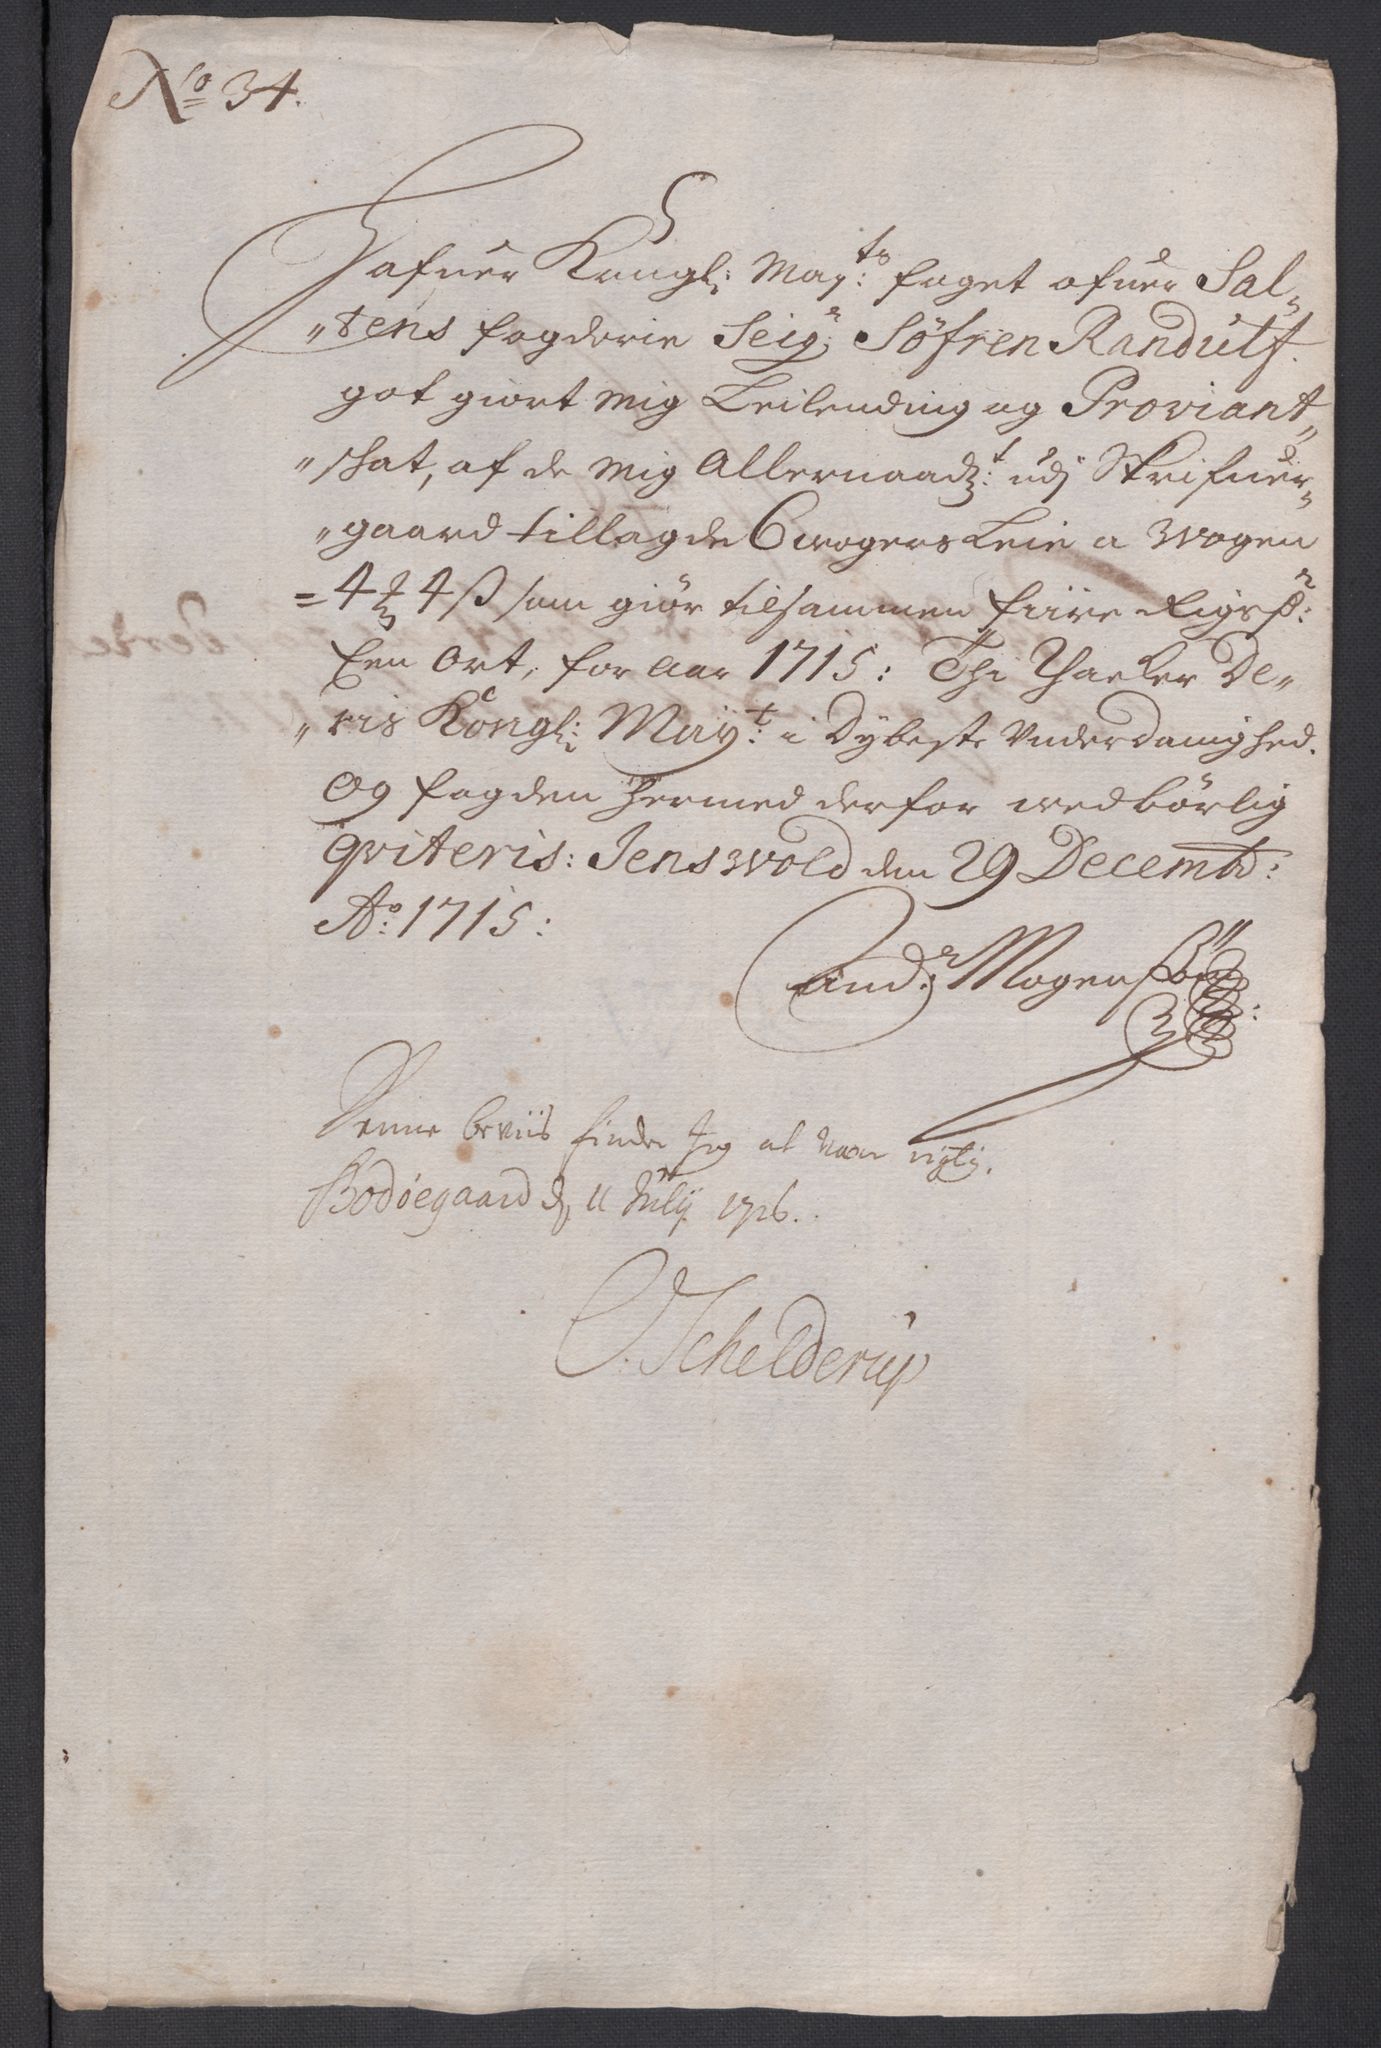 No 34.
Hafuer Kongl: May:ts foget ofuer Sal-
"tens fogderie Seigr: Söfren Randulf.
got giort mig Leilending og Proviant"
"skat, af de mig Allernaadst: udj Skrifuer-
"gaard tillagde 6 wogers Leie a wogen
=4 4 ß som giör tilsammen fiire Rigsdr:
Een Ort, for aar 1715: Thi Tacker De"
"ris Kongl: Mayt: i Dybeste Underdanighed.
Og fogden hermed derfor wedbörlig
qviteris: Jenswold den 29 Decembr:
Ao: 1715:
And: Mogensøn
Denne beviis finder Jeg at være rigtig.
Bodøegaard d, 11 July 1716.
O. Schelderup